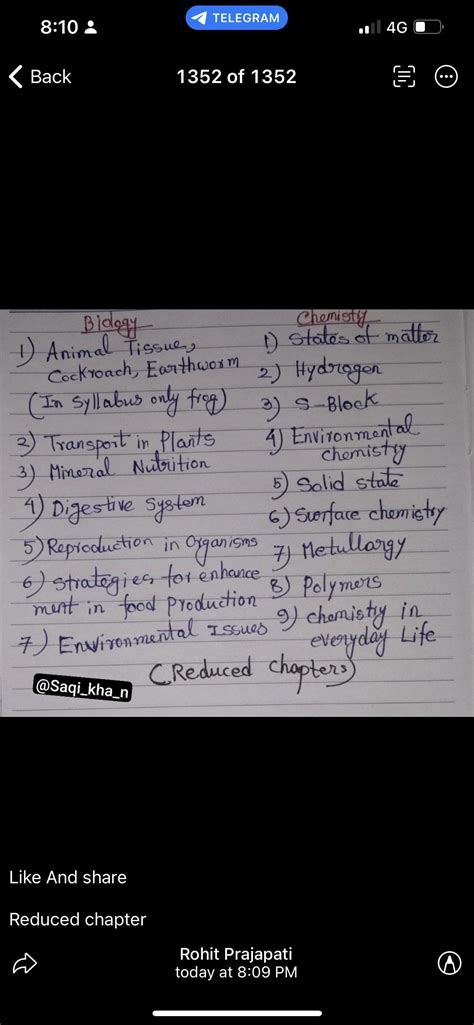 8:10
TELEGRAM
4G
Back
1352 of 1352
Biology
1) Animal Tissue,
Cockroach, Earthworm
(In Syllabus only frog)
2) Transport in Plants
3) Mineral Nutrition
4) Digestive System
5) Reproduction in Organisms
6) strategies for enhance
ment in food production
7) Environmental Issues
Chemisty
1) States of matter
2) Hydrogen
3) S-Block
4) Environmental
chemistry
5) Solid state
6) Surface chemistry
7) Metullargy
8) Polymers
9) chemistry in
everyday Life
(Reduced chapters)
@Saqi_kha_n
Like And share
Reduced chapter
Rohit Prajapati
today at 8:09 PM